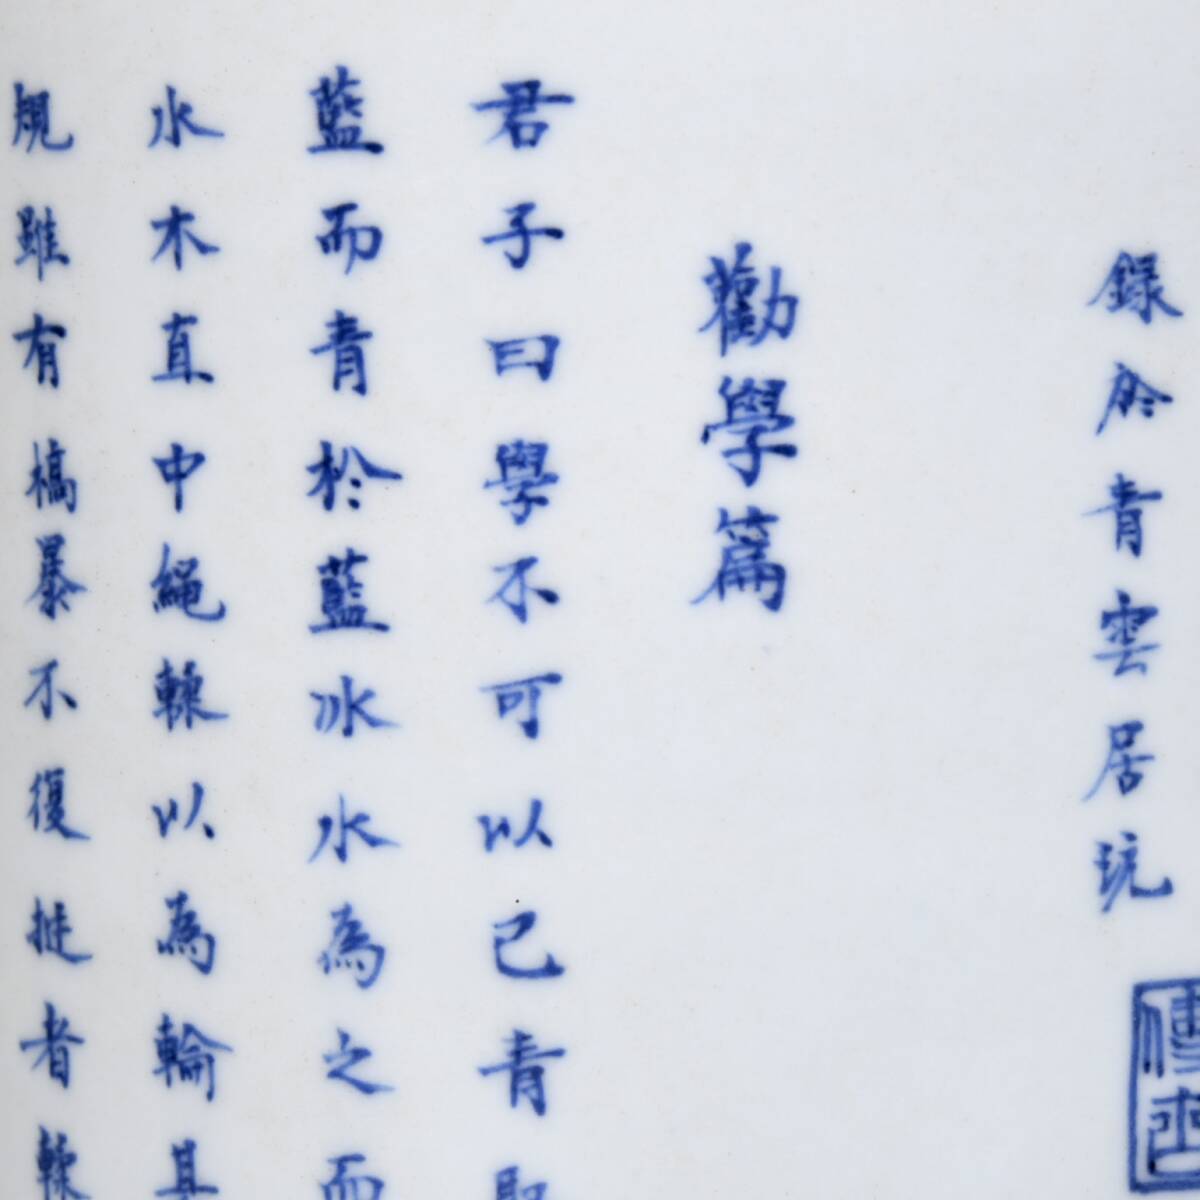 錄於青雲居玩
勸學篇
君子曰學不可以已青取
藍而青於藍冰水為之而
水木直中繩輮以為輪其
規雖有槁暴不復挺者輮